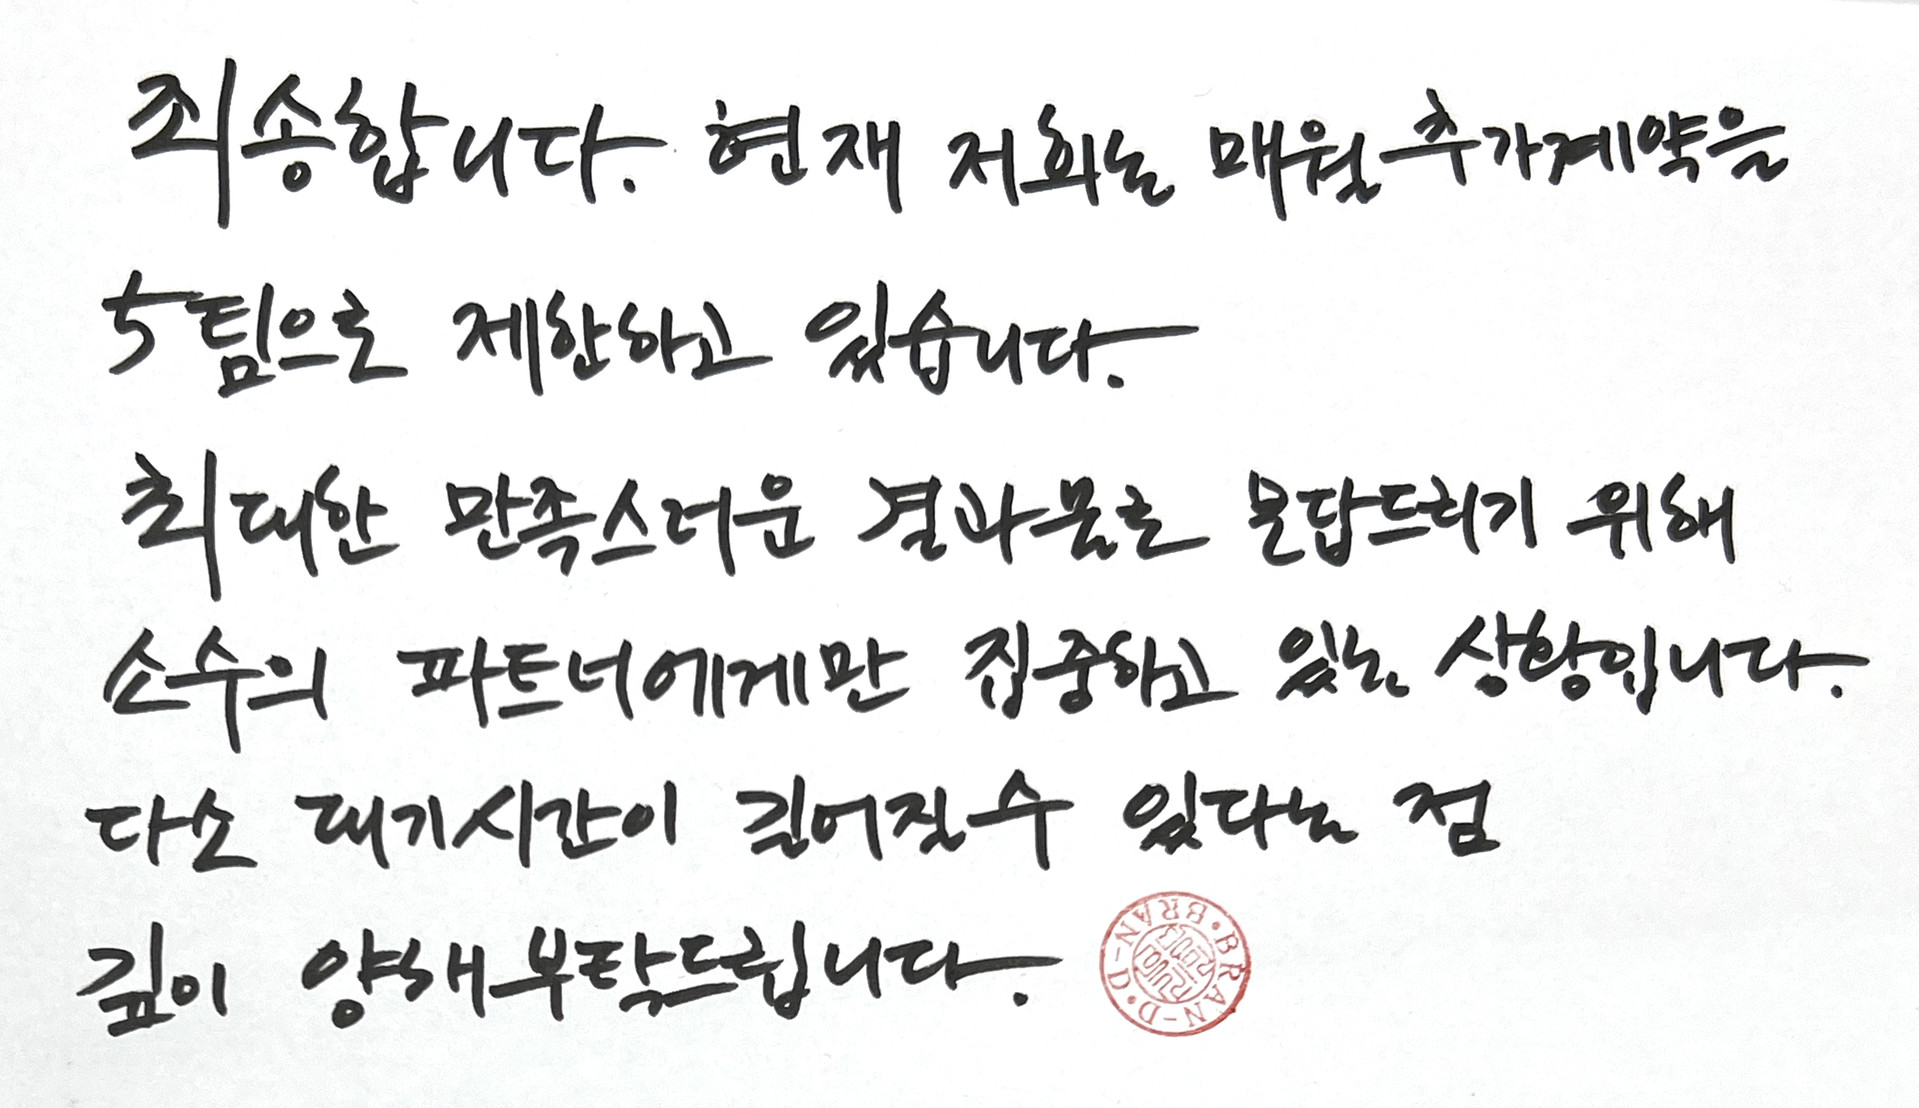 죄송합니다. 현재 저희는 매월 추가계약을
5팀으로 제한하고 있습니다.
최대한 만족스러운 결과물로 보답드리기 위해
소수의 파트너에게만 집중하고 있는 상황입니다.
다소 대기시간이 길어질 수 있다는 점
깊이 양해 부탁드립니다.
BRAN-D • BRAN-D •